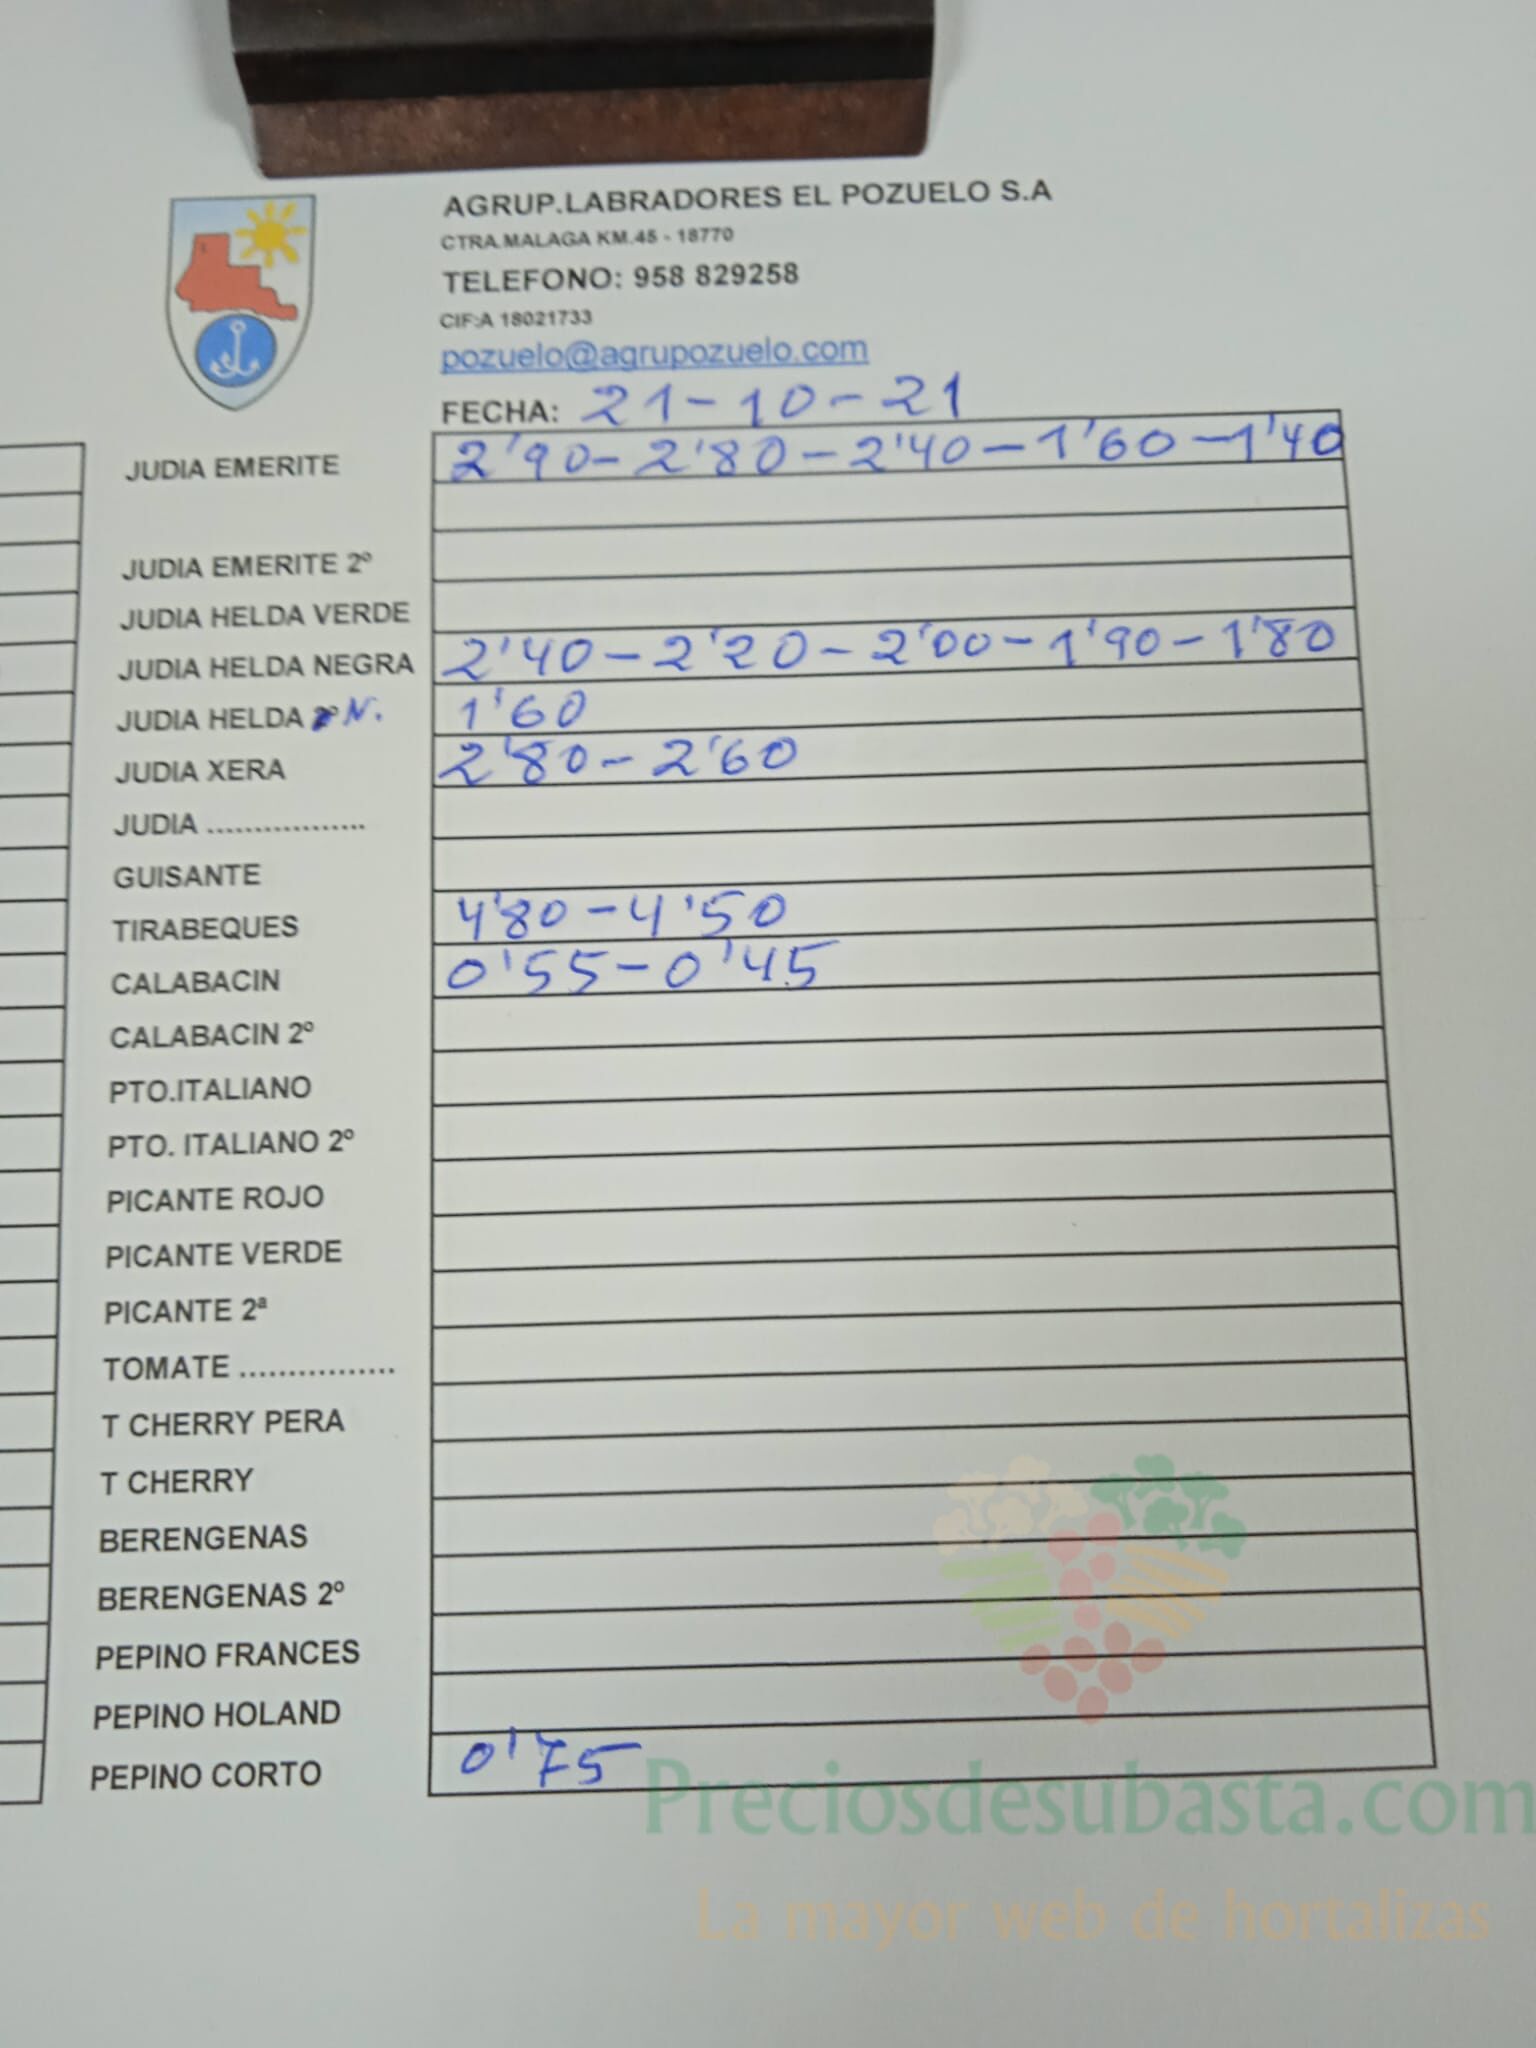 AGRUP.LABRADORES EL POZUELO S.A
CTRA.MALAGA KM.45 - 18770
TELEFONO: 958 829258
CIF:A 18021733
pozuelo@agrupozuelo.com
FECHA: 21-10-21
JUDIA EMERITE 2'90-2'80-2'40-1'60-1'40
JUDIA EMERITE 2º
JUDIA HELDA VERDE
JUDIA HELDA NEGRA 2'40-2'20-2'00-1'90-1'80
JUDIA HELDA N. 1'60
JUDIA XERA 2'80-2'60
JUDIA .................
GUISANTE
TIRABEQUES 4'80-4'50
CALABACIN 0'55-0'45
CALABACIN 2º
PTO.ITALIANO
PTO. ITALIANO 2º
PICANTE ROJO
PICANTE VERDE
PICANTE 2ª
TOMATE ................
T CHERRY PERA
T CHERRY
BERENGENAS
BERENGENAS 2º
PEPINO FRANCES
PEPINO HOLAND
PEPINO CORTO 0'75
Preciosdesubasta.com
La mayor web de hortalizas